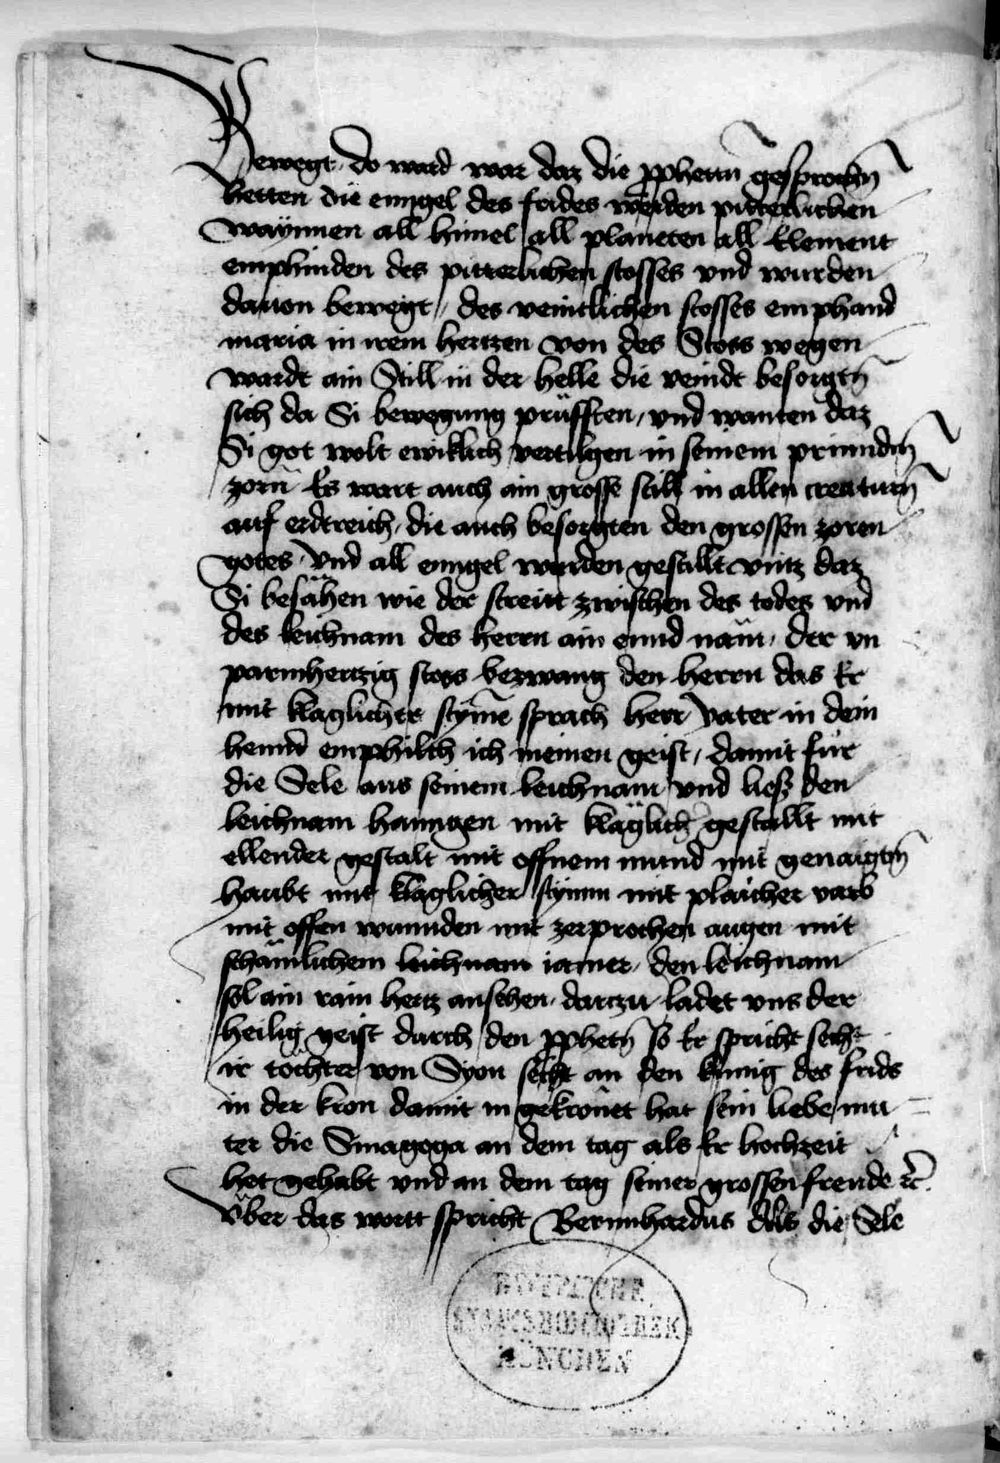 Bewegt do ward war daz die ppheten gesprochn̄
hetten die enngel des frides werden pitterlichen
waÿnnen all himel all planeten all Element
emphinden des pitterlichen stosses vnd wurden
dauon bewegt / des veintlichen stosses emphand
maria in irem hertzen von des Stoss wegen
wardt ain Still in der helle die veindt besorgtn̄
sich da Si bewegung prüfften / vnd wanten daz
Si got wolt ewiklich vertilgen in seinem prinndn̄
zorn̄ Es wart auch ain grosse still in allen creaturn̄
auf erdtreich / die auch besorgten den grossen zoren
gotes / vnd all enngel wurden gestillt vntz daz
Si besähen wie der streitt zwischen des todes vnd
des leichnam des herrn ain ennd näm / der vn
parmhertzig stoss bezwang den herrn das Er
mit klaglicher stym̄e sprach herr vater in dein
hennd emphilch ich meinen geist / damit für
die Sele aus seinem leichnam vnd liesz den
leichnam hanngen mit kläglich gestallt mit
ellender gestalt mit offnem mund mit genaigtn̄
haubt mit klaglicher stymm mit plaicher varb
mit offen wunnden mit zerprochen augen mit
schämlichem leichnam iamer / den leichnam
sol ain rain hertz ansehen / darczu ladet vns der
heilig geist durch den pphetn̄ so Er spricht secht
ir töchter von Syon secht an den kunig des frids
in der kron damit in gekrönet hat sein liebe mu
ter die Sinagoga an dem tag als Er hochzeit
het gehabt vnd an dem tag seiner grossen freude ꝛc̄.
Vber das wortt spricht Bernnhardus Als die Sele
BAYERISCHE
STAATSBIBLIOTHEK
MÜNCHEN